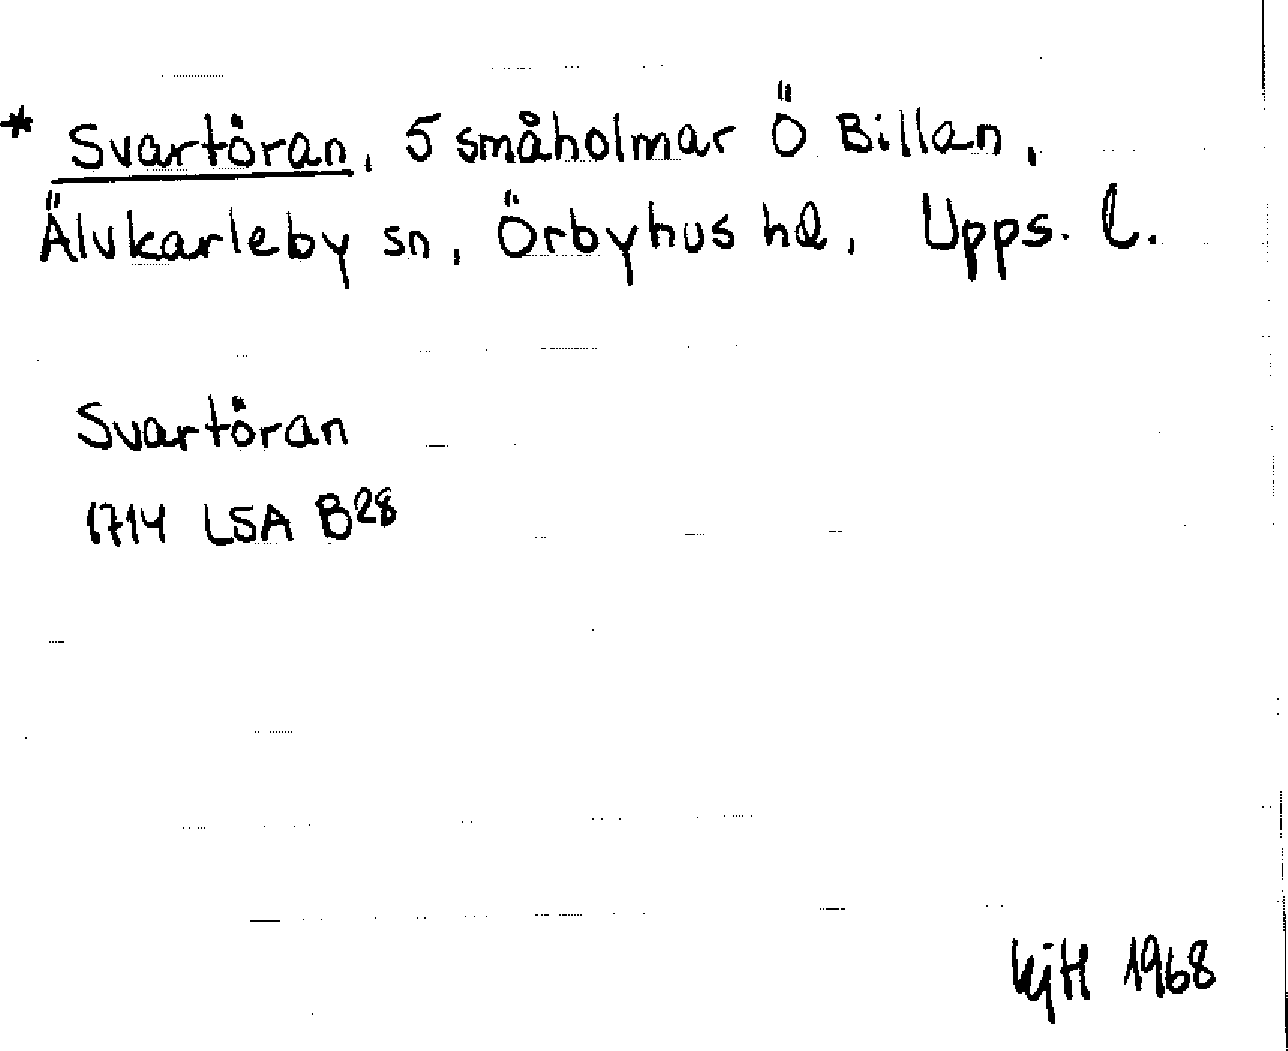 * Svartöran, 5 småholmar Ö Billan,
Älvkarleby sn, Örbyhus hd, Upps. l.
Svartöran
1714 LSA B28
KjH 1968